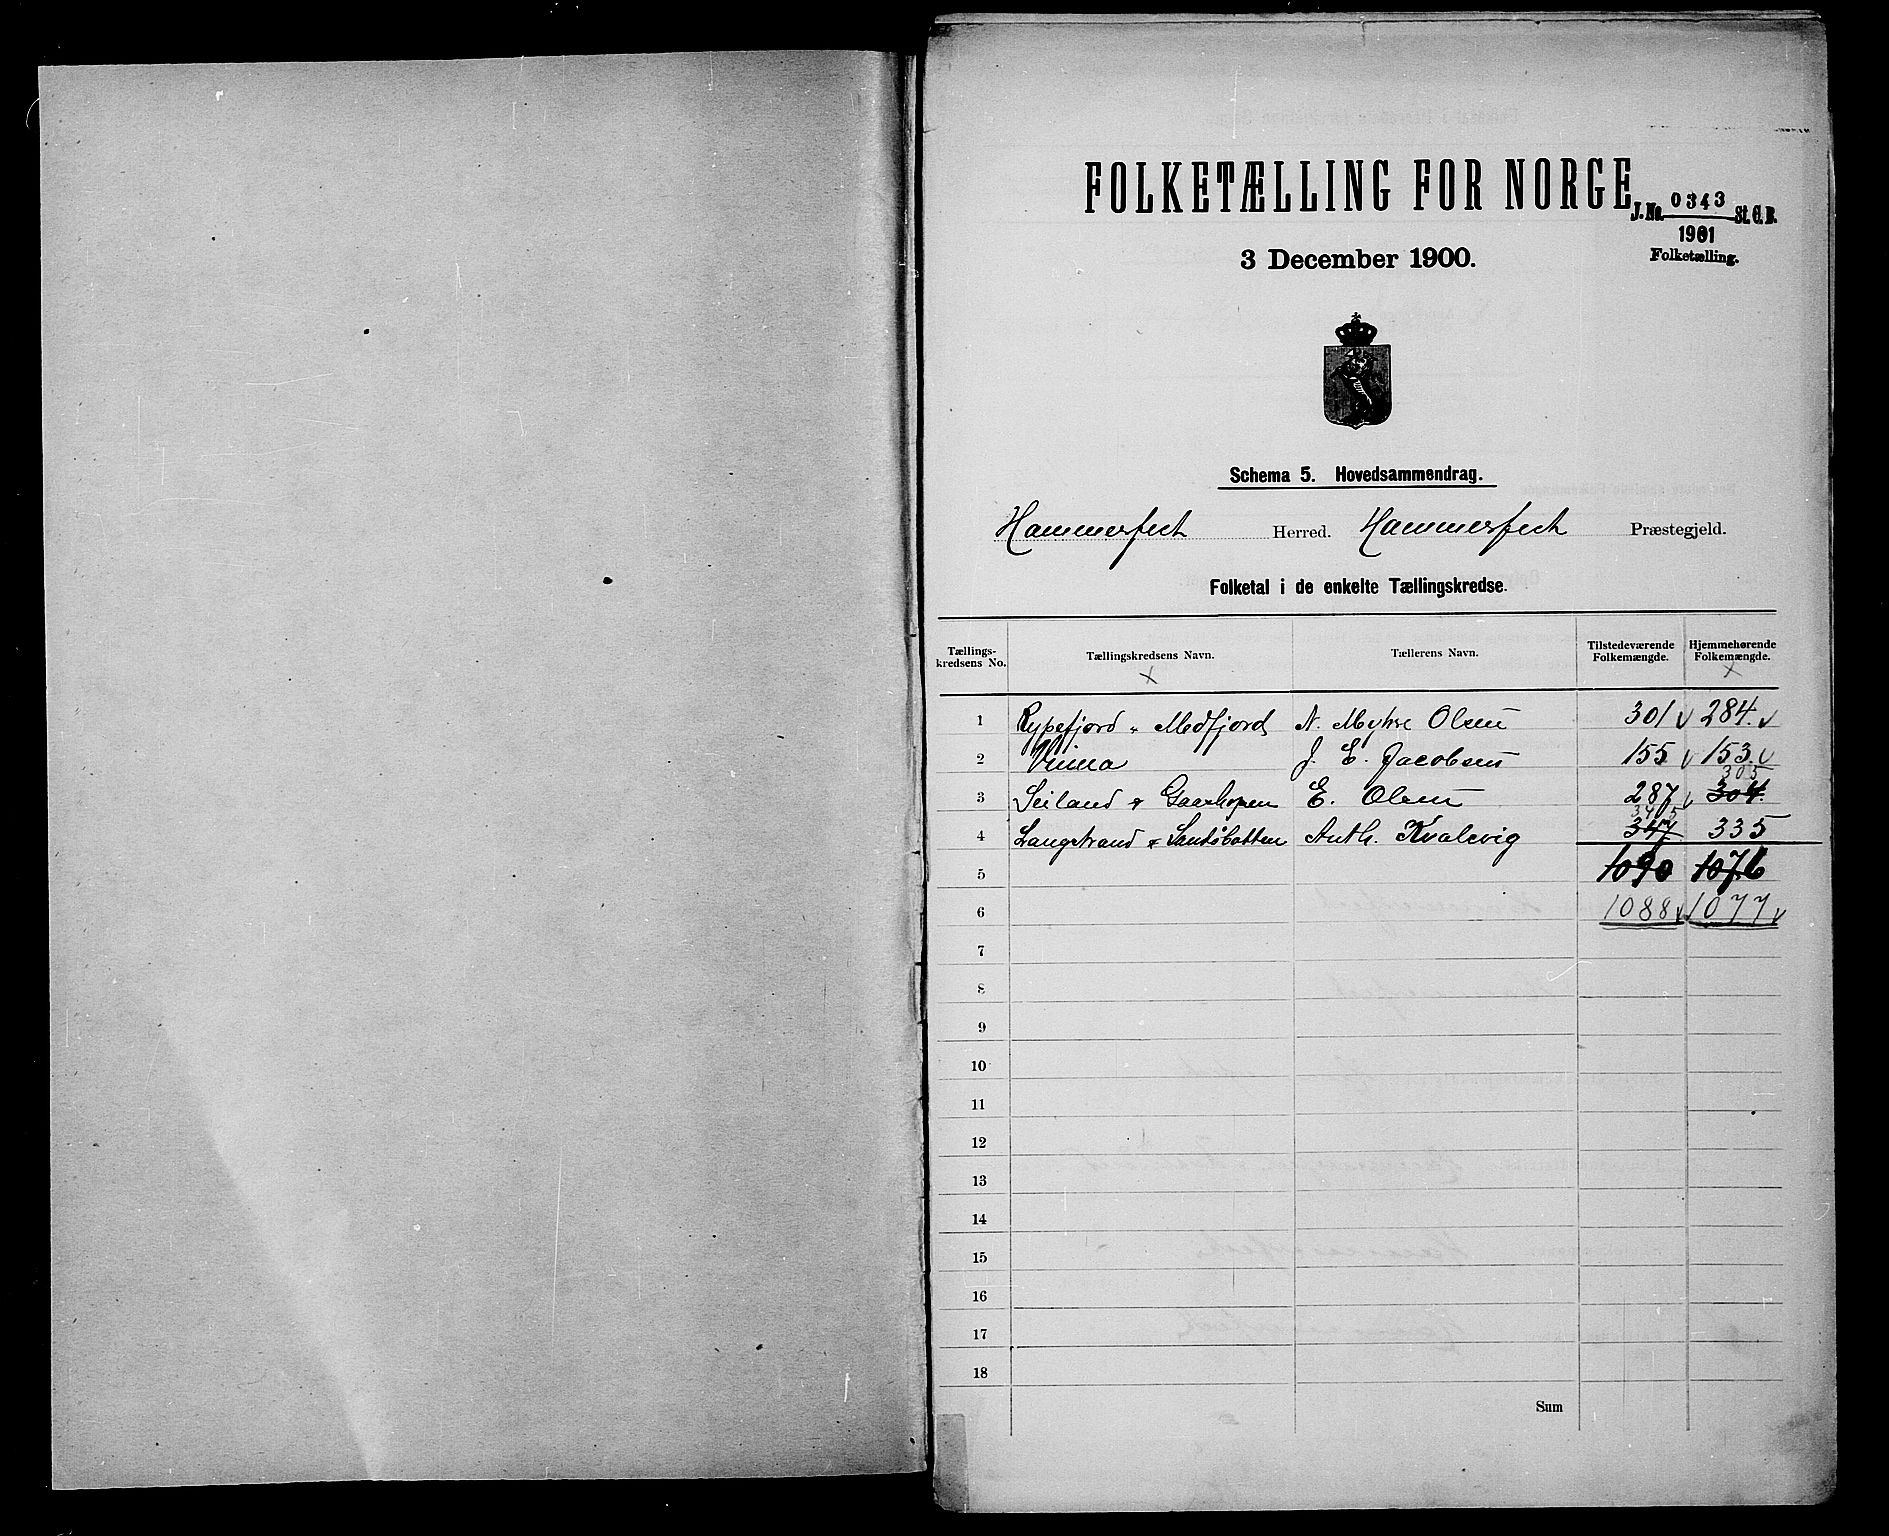 FOLKETÆLLING FOR NORGE
J. No. 0343 St. C. B.
1901
Folketælling.
3 December 1900.
Schema 5. Hovedsammendrag.
Hammerfest Herred. Hammerfest Præstegjeld.
Folketal i de enkelte Tællingskredse.
Tællings-kredsens No. Tællingskredsens Navn. Tællerens Navn. Tilstedeværende Folkemængde. Hjemmehørende Folkemængde.
1 Rypefjord " Medfjord N. Myhre Olsen 301 284
2 J. E. Jacobsen 155 153
305
3 Seiland & Gaashopen E. Olsen 287 304
345
4 Langstrand & Sandøbotten Anth. Kvalevig 347 335
5 1090 1076
6 1088 1077
7
8
9
10
11
12
13
14
15
16
17
18
Sum